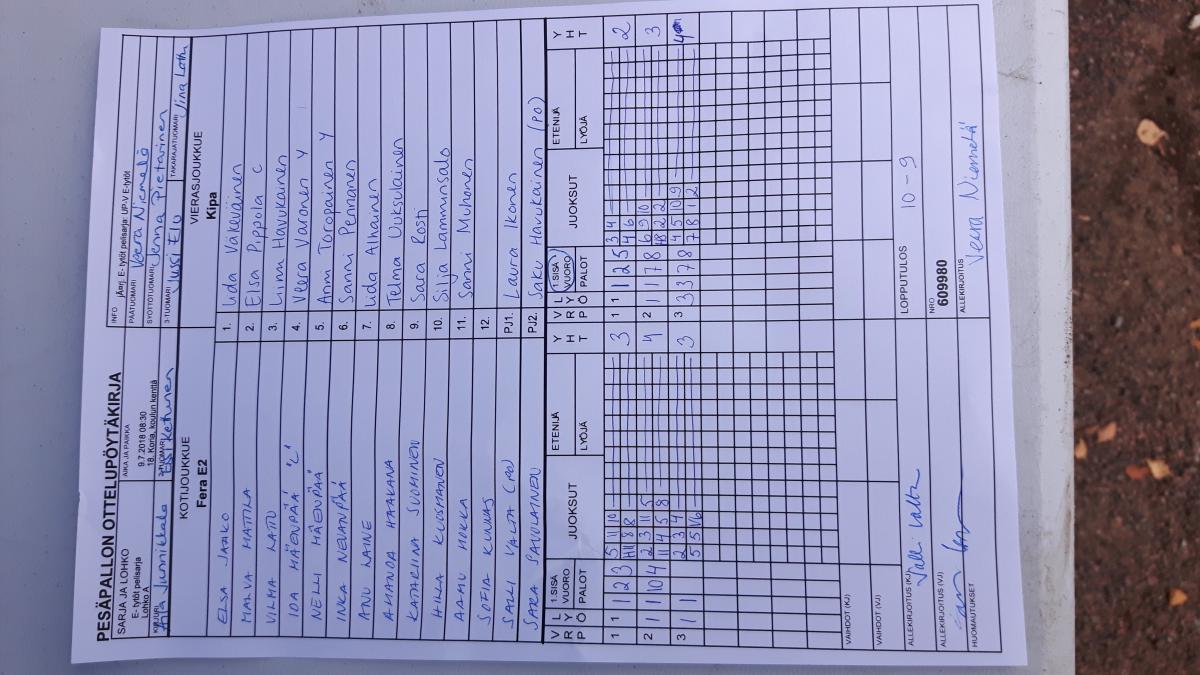 PESÄPALLON OTTELUPÖYTÄKIRJA
SARJA JA LOHKO
E- tytöt pelisarja
Lohko A
AIKA JA PAIKKA
9.7.2018 08:30
18. Koria, koulun kenttä
INFO E- tytöt pelisarja: UP-V E-tytöt
PÄÄTUOMARI Veera Niemelä
SYÖTTÖTUOMARI Jenna Pietarinen
KIRJURI
2-TUOMARI Essi Kettunen
3-TUOMARI Jussi Elo
TAKARAJATUOMARI Jina Lattu
KOTIJOUKKUE
Fera E2
VIERASJOUKKUE
Kipa
ELSA JAAKO 1. Iida Väkeväinen
MALVA MATTILA 2. Elsa Pippola C
VILMA LAITU 3. Linn Havukainen
IDA HÄENPÄÄ "C" 4. Veera Varonen Y
NELLI HÄENPÄÄ 5. Anni Toropainen Y
INKA NEVANPÄÄ 6. Sanni Pennanen
ANU LAINE 7. Iida Alhainen
AMANDA HAAKANA 8. Telma Uuksulainen
KATARIINA SUOMINEN 9. Sara Rosti
HILLA KUOSMANEN 10. Silja Lamminsalo
AAMU HOKKA 11. Sanni Muhonen
SOFIA KUNNAS 12.
SALLI VALTA (PO) PJ1. Laura Ikonen
SARA SAVOLAINEN PJ2. Saku Havukainen (PO)
VRP LYÖ 1.SISÄ VUORO PALOT JUOKSUT ETENIJÄ LYÖJÄ YHT VRP LYÖ 1.SISÄ VUORO PALOT JUOKSUT ETENIJÄ LYÖJÄ YHT
1 1 1 2 3 5 11 10 3 1 1 1 2 5 3 4 2
8 8 4 6
2 1 1 10 4 2 3 11 5 4 2 1 1 7 8 6 9 10 3
11 4 5 8 2 2
3 1 1 2 3 4 3 3 3 3 7 8 4 5 10 9 4
5 5 6 7 8 1 2
VAIHDOT (KJ)
VAIHDOT (VJ)
LOPPUTULOS 10 - 9
ALLEKIRJOITUS (KJ)
NRO
609980
ALLEKIRJOITUS (VJ)
ALLEKIRJOITUS
Veera Niemelä
HUOMAUTUKSET